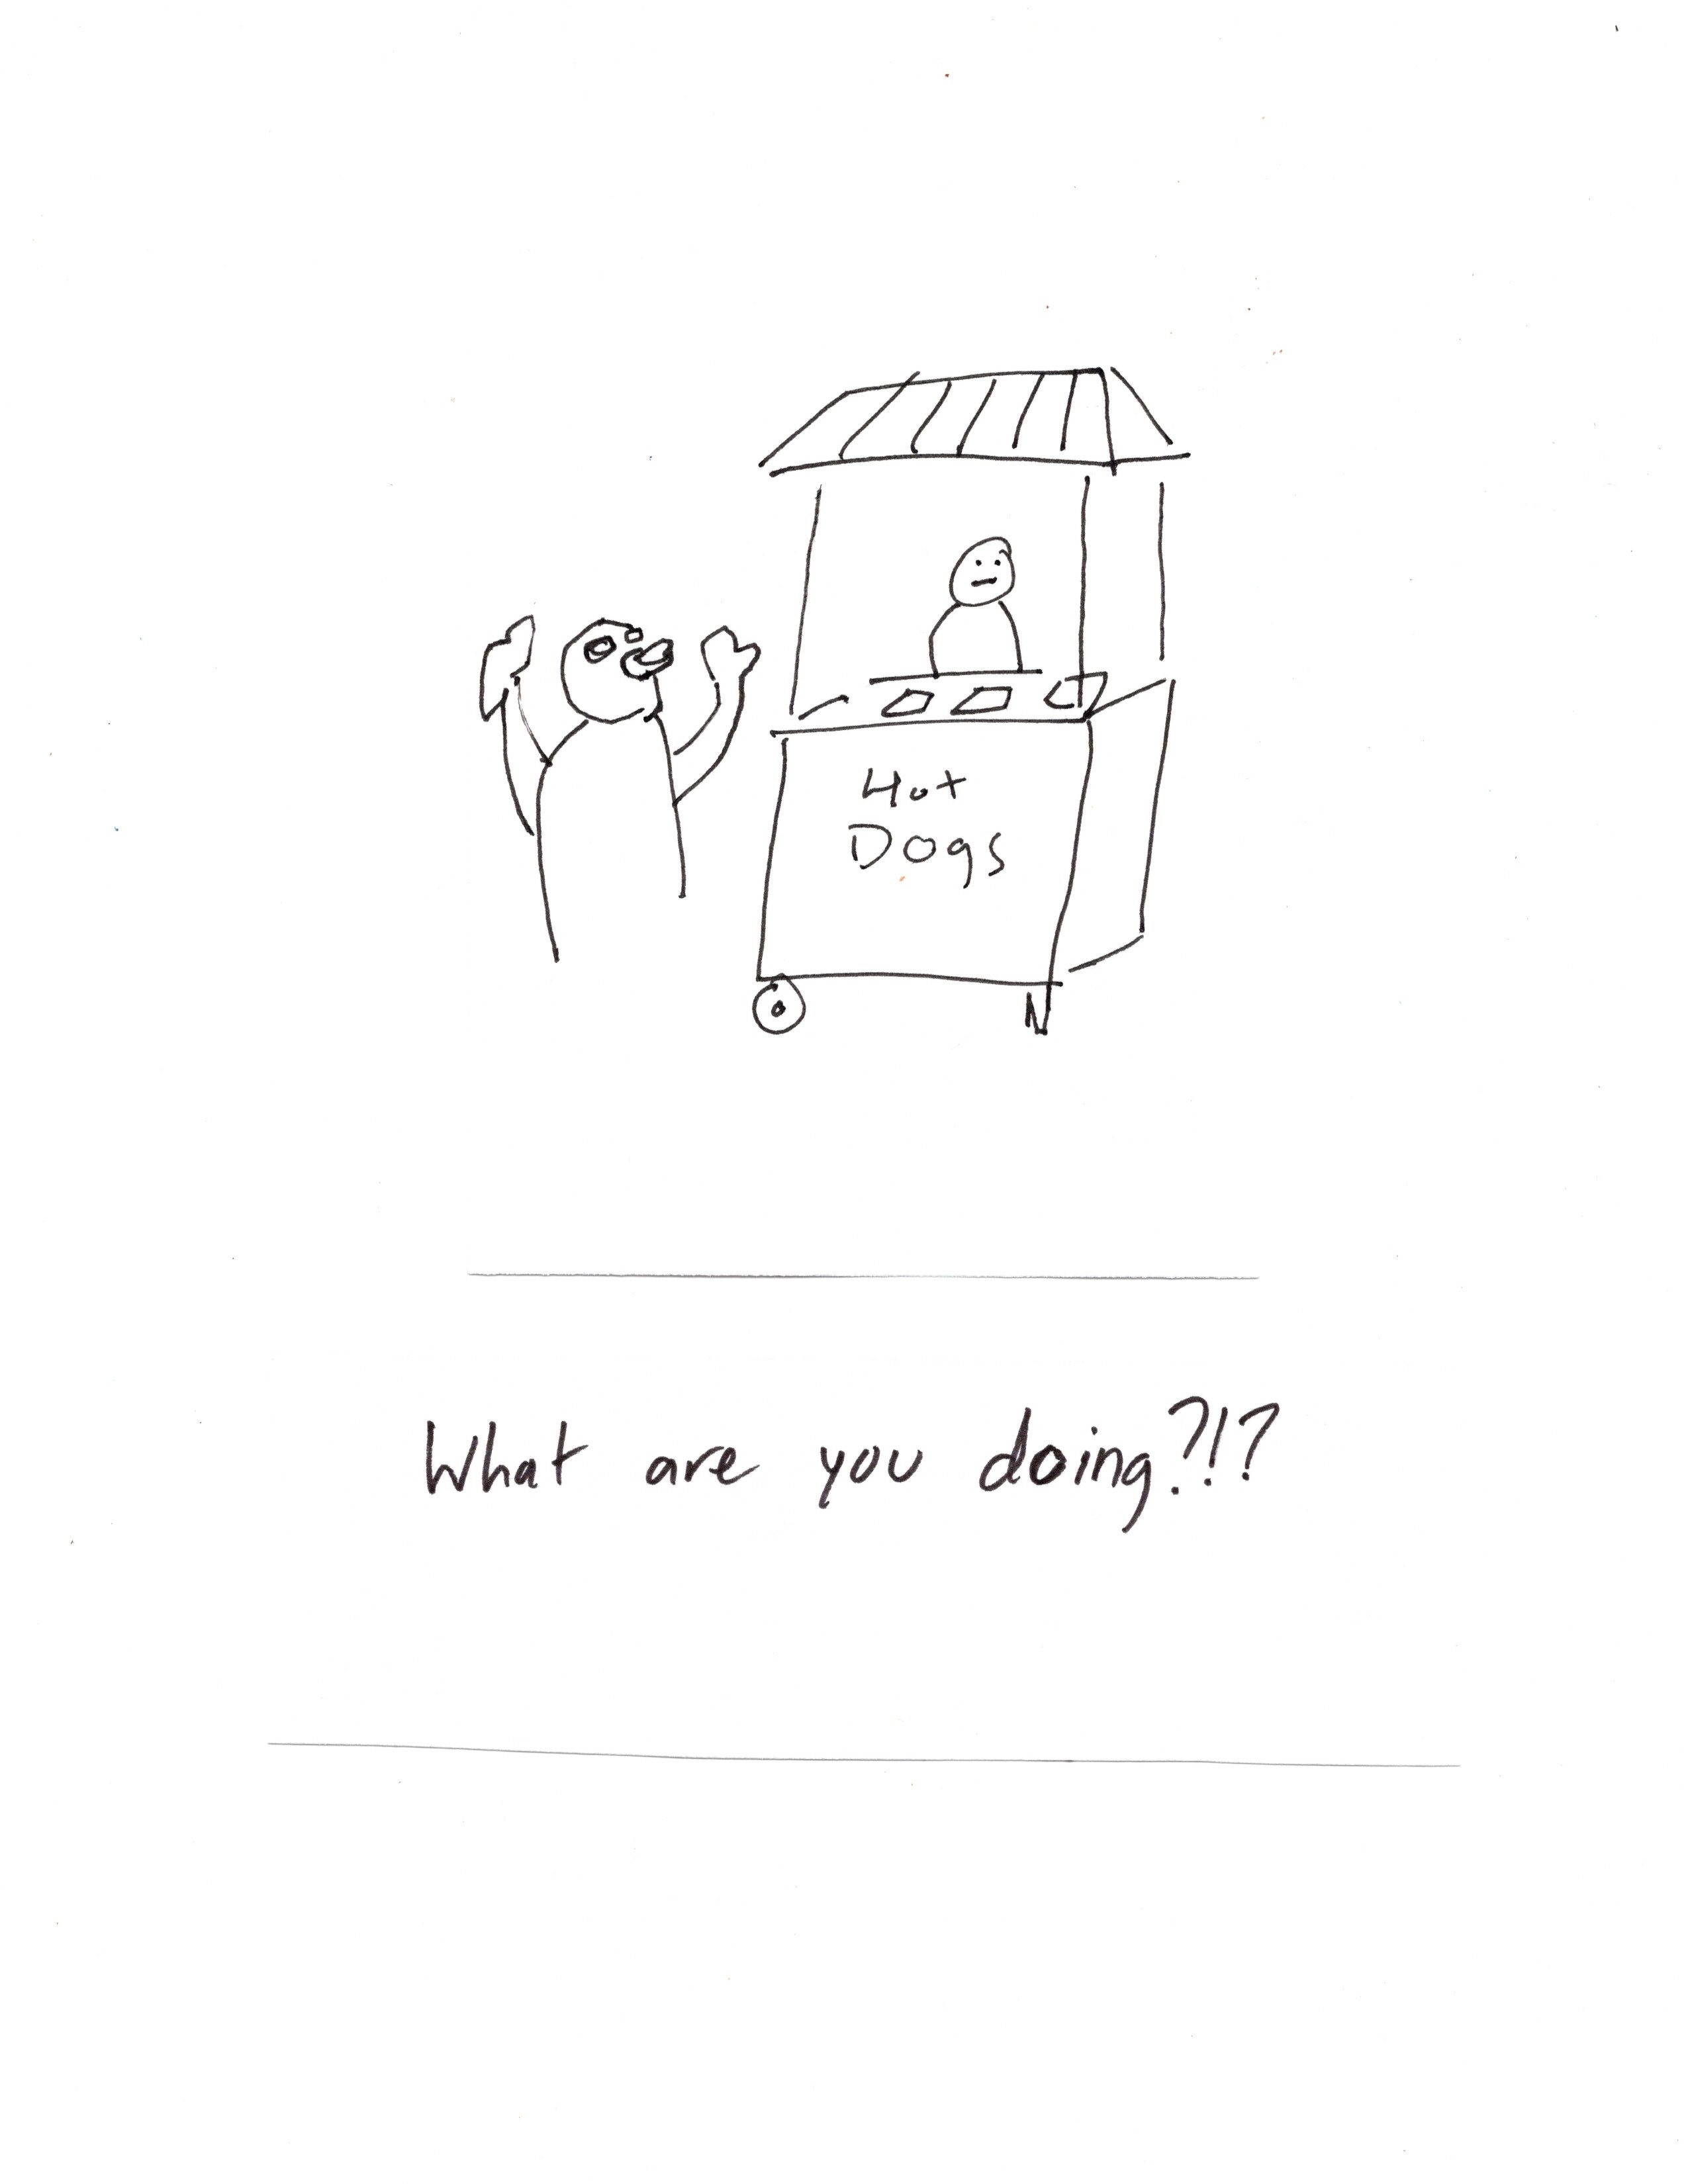 Hot
Dogs
What are you doing?!?